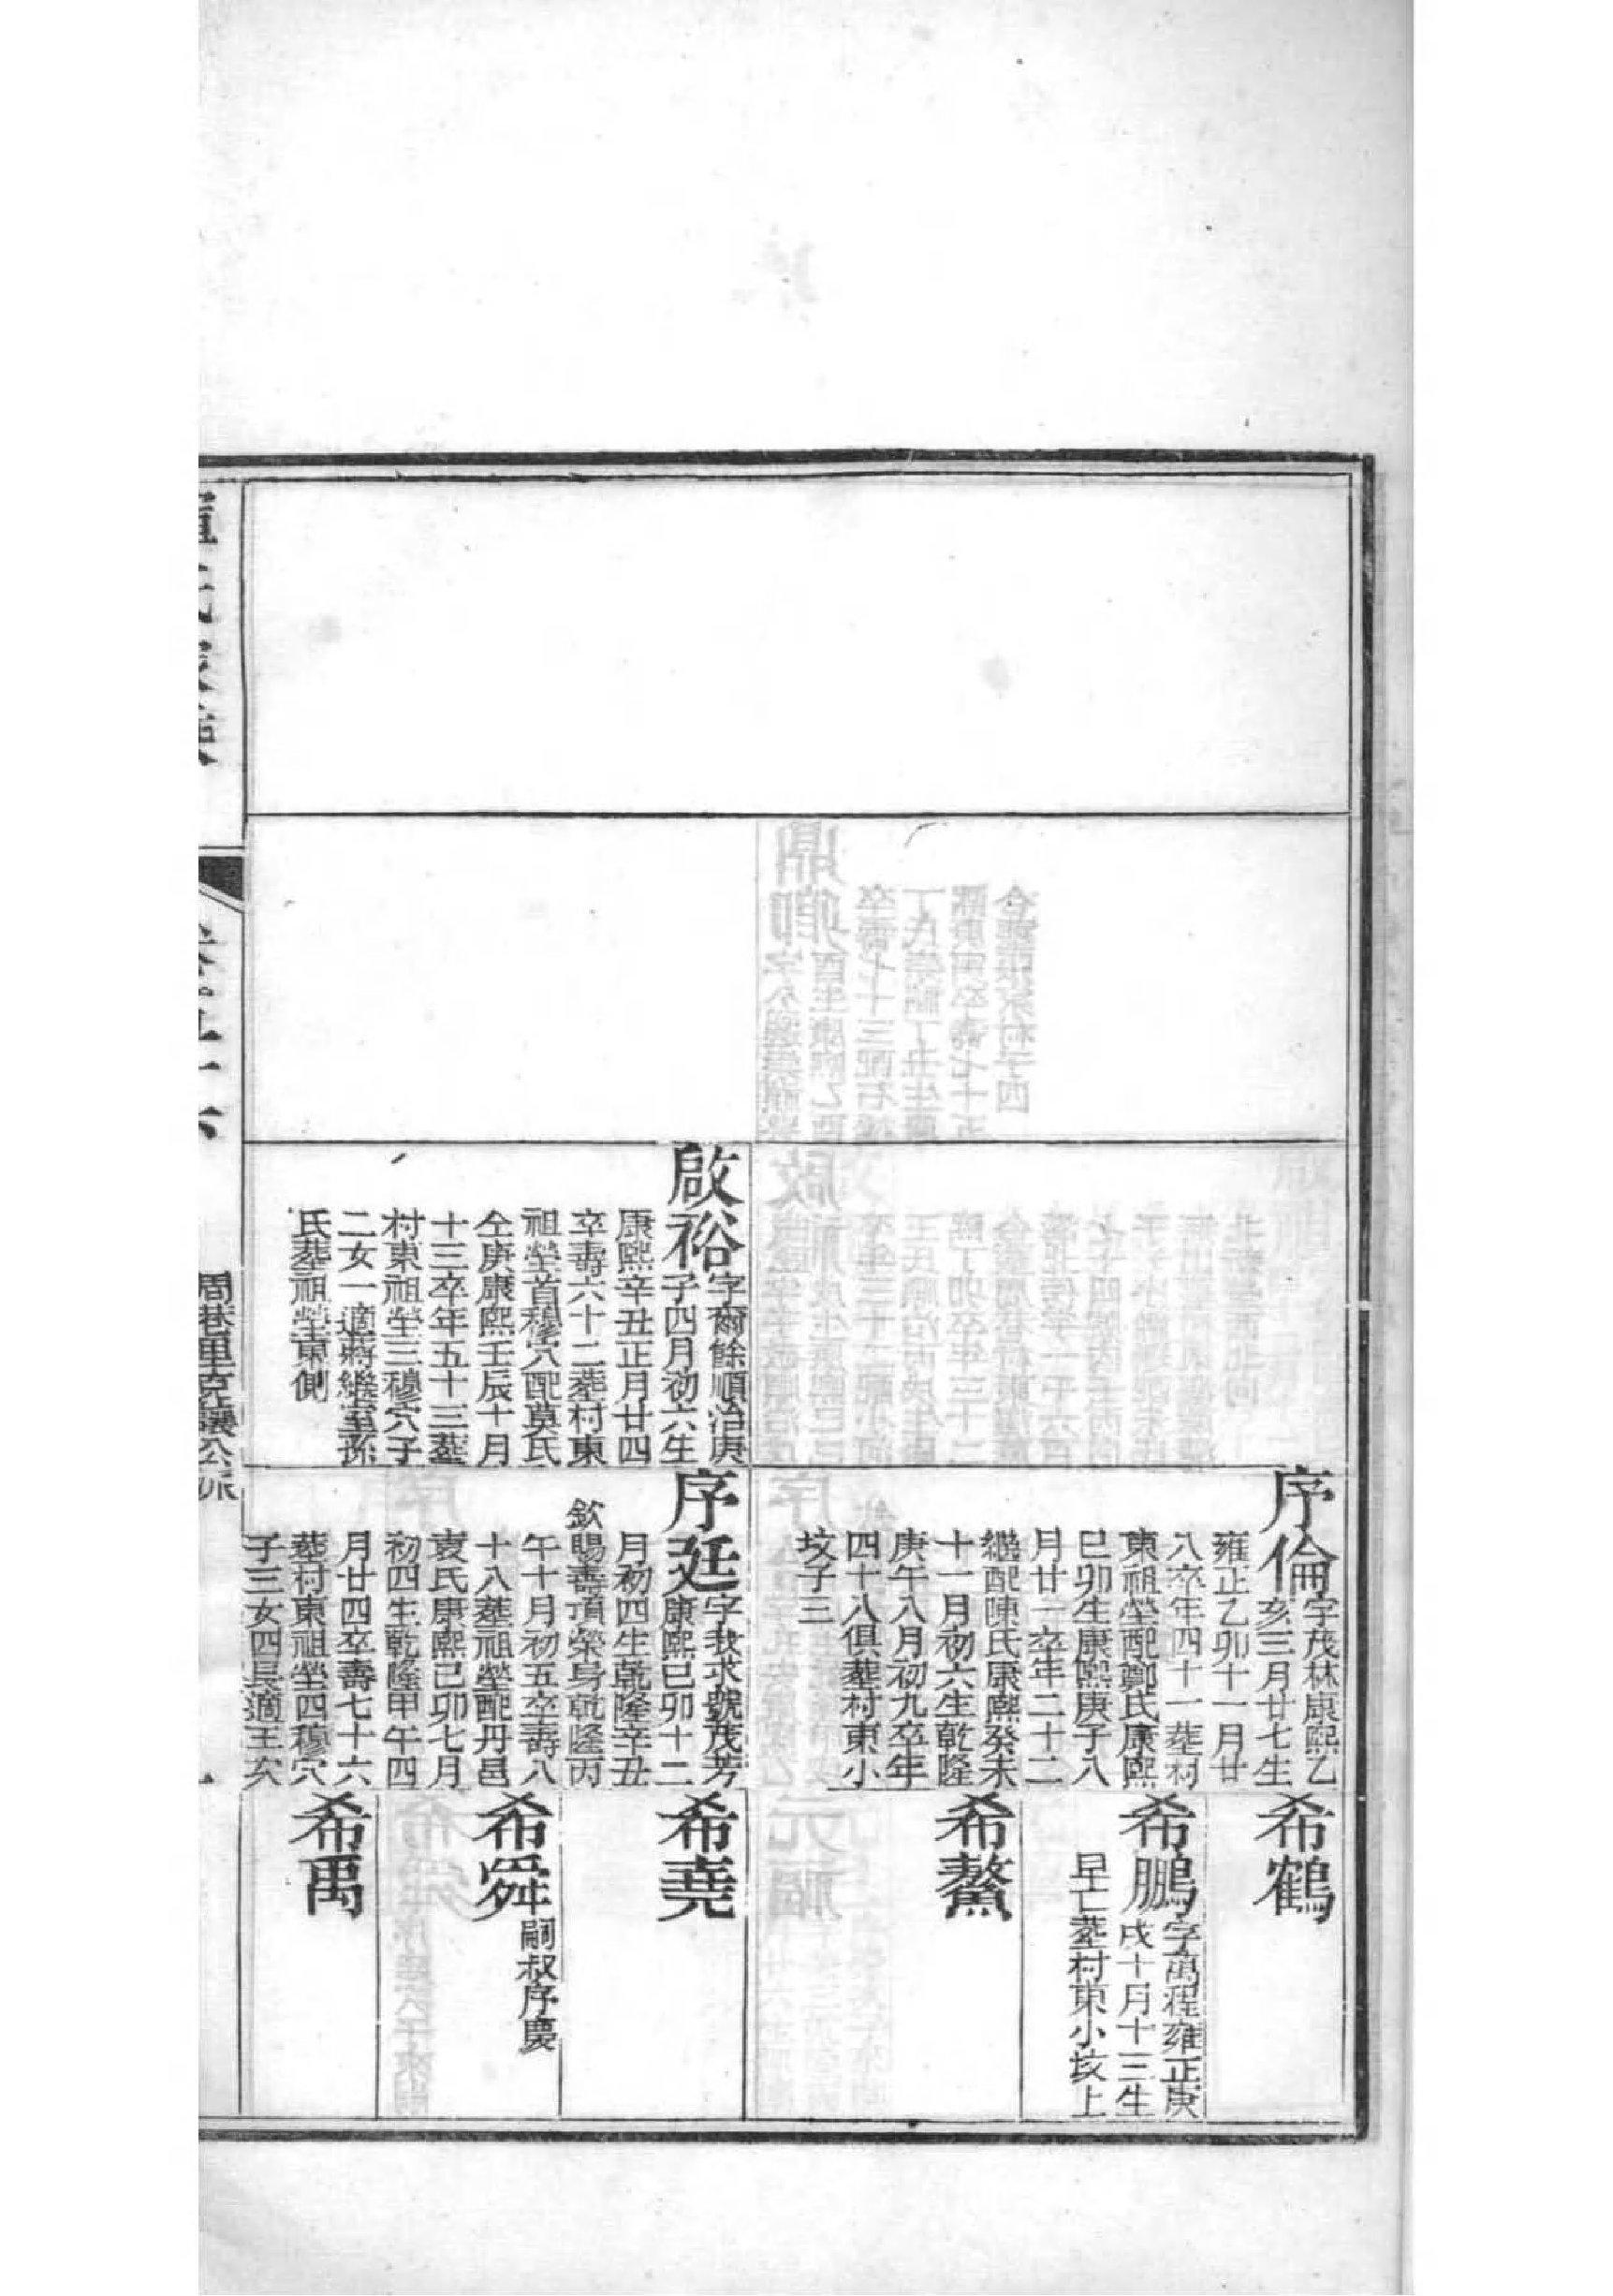 啟裕字爾餘順治庚
子四月初六生
康熙辛丑正月廿四
卒壽六十二葬村東
祖塋首穆穴配莫氏
仝庚康熙壬辰十月
十三卒年五十三葬
村東祖塋三穆穴子
二女一適蔣繼室孫
氏葬祖塋東側
序倫字茂林康熙乙
亥三月廿七生
雍正乙卯十一月廿
八卒年四十一葬村
東祖塋配鄭氏康熙
己卯生康熙庚子八
月廿一卒年二十二
繼配陳氏康熙癸未
十一月初六生乾隆
庚午八月初九卒年
四十八俱葬村東小
坟子三
序廷字我求號茂芳
康熙己卯十二
月初四生乾隆辛丑
欽賜壽頂榮身乾隆丙
午十月初五卒壽八
十八葬祖塋配丹邑
袁氏康熙己卯七月
初四生乾隆甲午四
月廿四卒壽七十六
葬村東祖塋四穆穴
子三女四長適王次
希鶴
希鵬字萬程雍正庚
戌十月十三生
早亡葬村東小坟上
希鰲
希堯
希舜嗣叔序慶
希禹
周巷里克讓公派